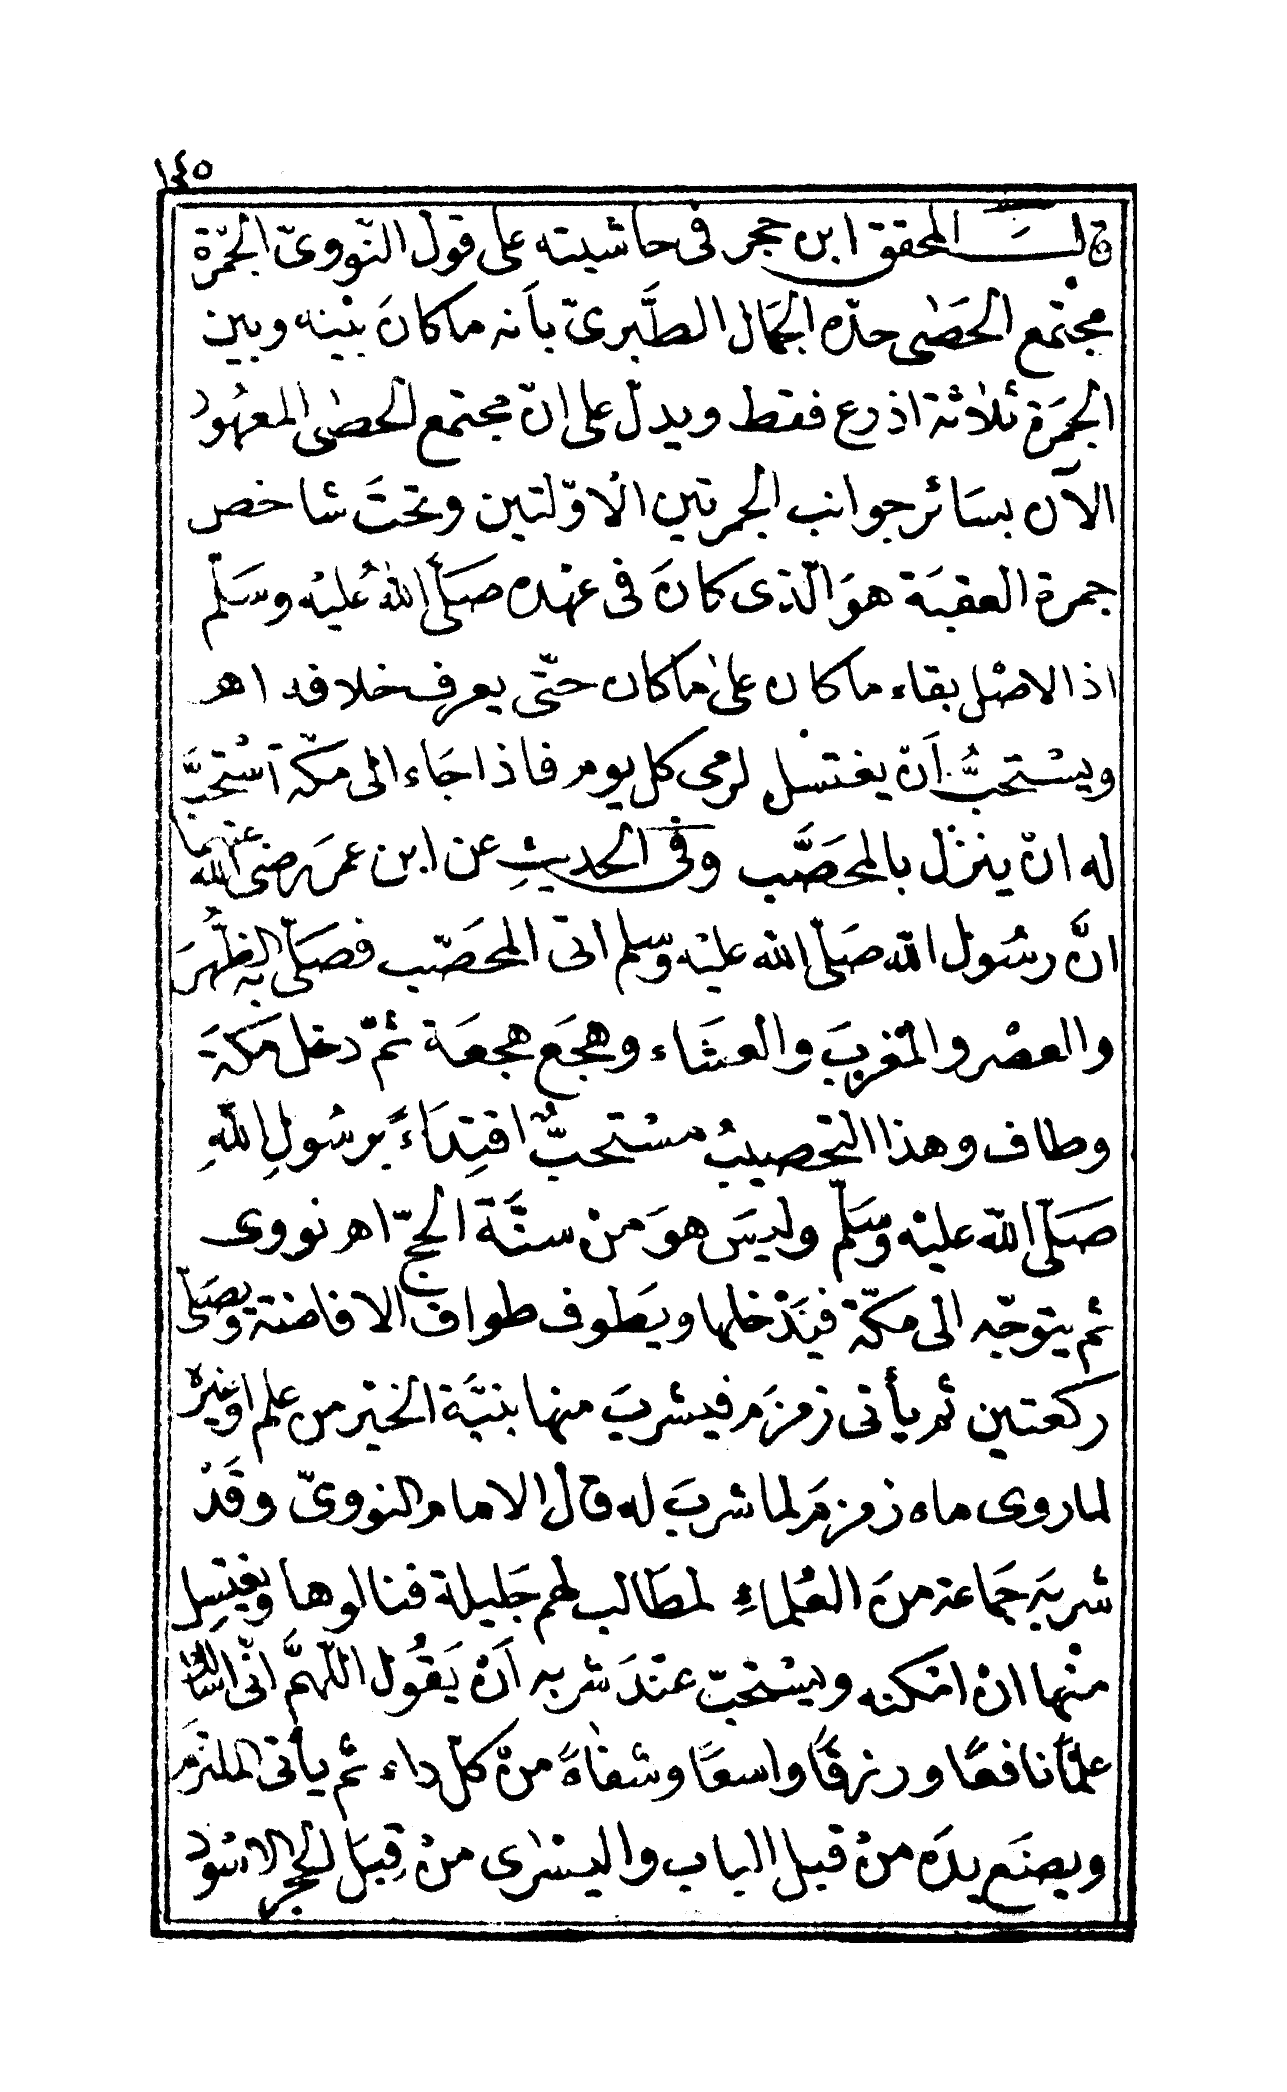 ١٤٥
قال المحقق ابن حجر فى حاشيته على قول النّووىّ الجمرة
مجتمع الحَصٰى حدّه الجمَال الطَّبرىّ بأنه ما كانَ بيْنه وبين
الجمرَة ثلاثة اذرع فقط ويدلّ على انّ مجتمع الحصٰى المعهُود
الآن بسَائر جوانب الجمرتين الاوّلتين وتحتَ شاخص
جمرة العقبَة هوَ الّذى كانَ فى عهْده صَلّى اللهُ عُليْه وسَلّم
اذ الاصْل بقاء ما كان علىٰ ما كان حتّى يعرف خلافه اهـ
ويسْتحبُّ أنْ يغتسل لرمى كل يوم فاذا جَاء الى مكّة اسْتحبَّ
له انْ ينزل بالمحصَّب وفى الحديثِ عن ابن عمرَ رضى الله عنهما
انَّ رسُول الله صَلّى الله عليْه وسلم اتى المحصّب فصَلّى به الظّهرَ
والعصْر والمغربَ والعشَاء وهجَع هجعَة ثمّ دخل مكةَ
وطاف وهذا التحصيبُ مسْتحبٌّ اقتِدَاءً برسُولِ اللهِ
صَلّى اللّه عليْه وسَلّم وليسَ هوَ منْ سنَّة الحجّ اهـ نووى
ثم يتوجّه الى مكّة فيَدْخلها ويَطوف طواف الافاضة ويصَلّى
ركعتين ثم يأتى زمزمَ فيشربَ منها بنيَّة الخيْر من علم او غيْره
لما روى ماء زمزمَ لما شربَ له قال الامام النووىّ وقَدْ
شربَه جمَاعة منَ العُلماءِ لمطَالب لهم جَليلة فنالوها ويغتسِل
منْها انْ امْكنه ويسْتحبّ عنْدَ شربه أنْ يَقُول اللهمَّ انّى اسْألك
علْمًا نافعًا ورزقًا واسعًا وشفاءً منْ كلّ داء ثم يأتى الملتزمَ
ويصنَع يدَه منْ قبل الباب واليسْرٰى منْ قِبَل الحجر الاسْود